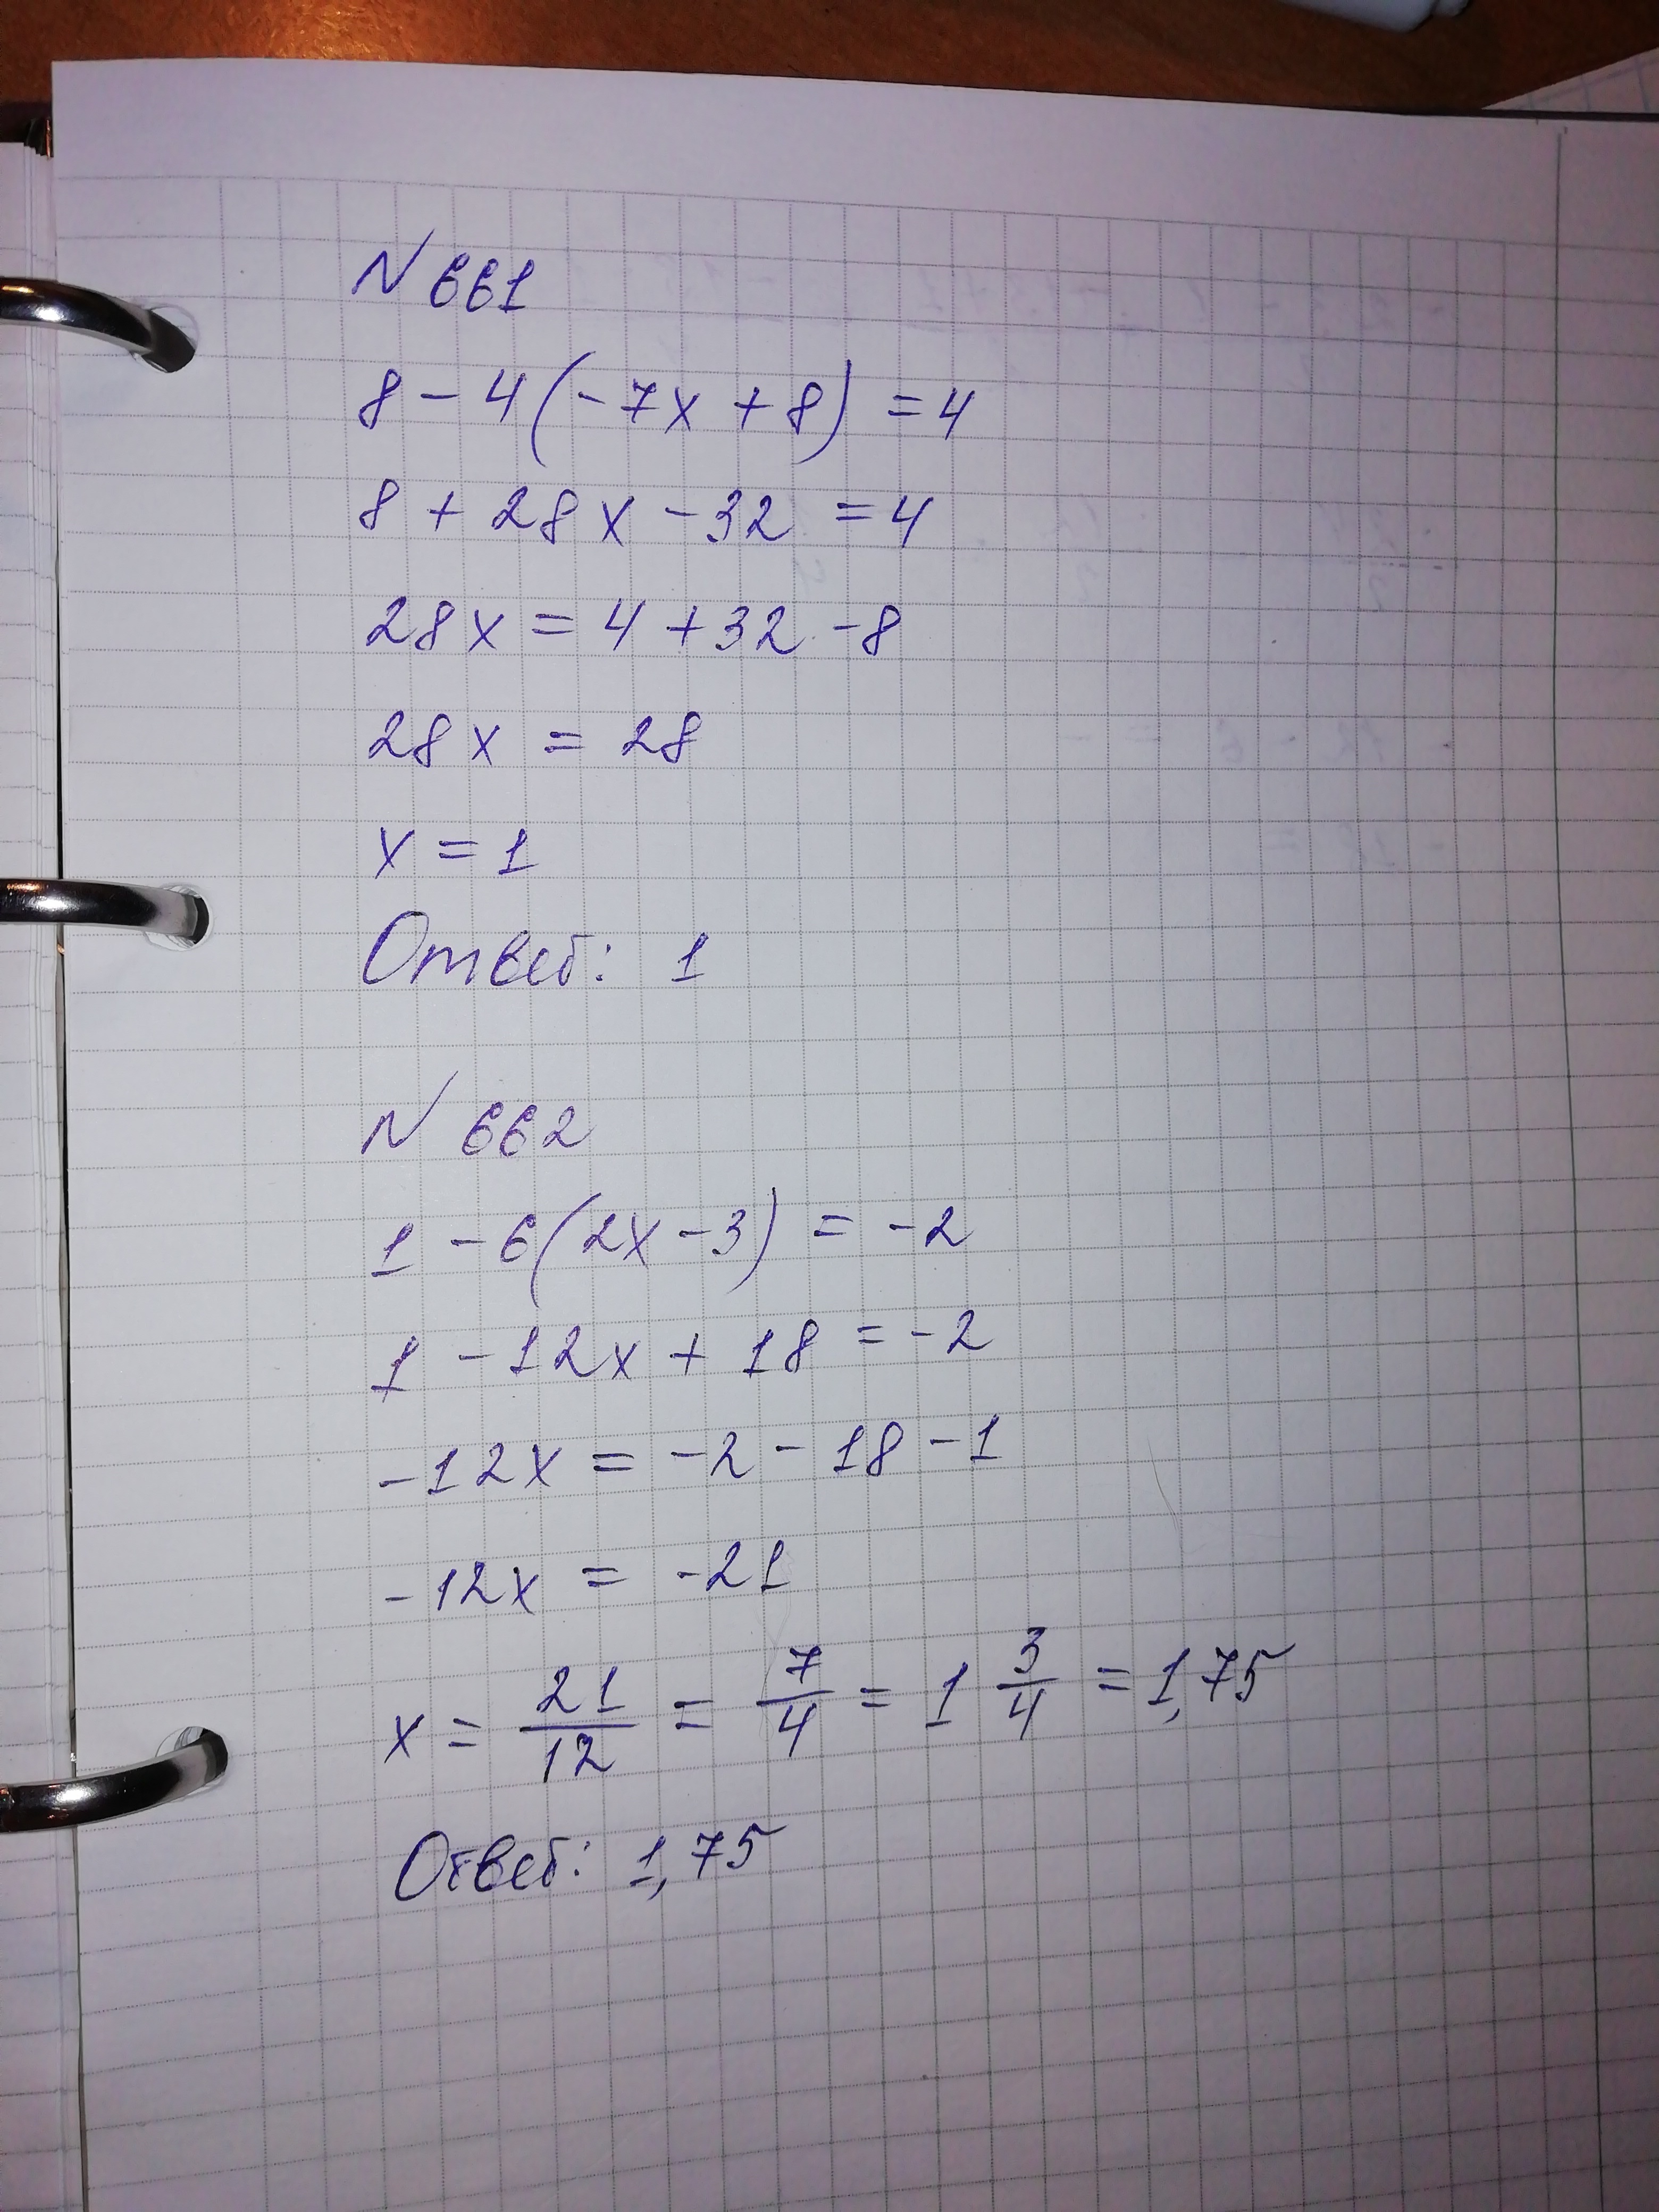 N 661
8 - 4(-7x + 8) = 4
8 + 28x - 32 = 4
28x = 4 + 32 - 8
28x = 28
x = 1
Ответ: 1
N 662
1 - 6(2x - 3) = -2
1 - 12x + 18 = -2
-12x = -2 - 18 - 1
-12x = -21
x = 21/12 = 7/4 = 1 3/4 = 1,75
Ответ: 1,75